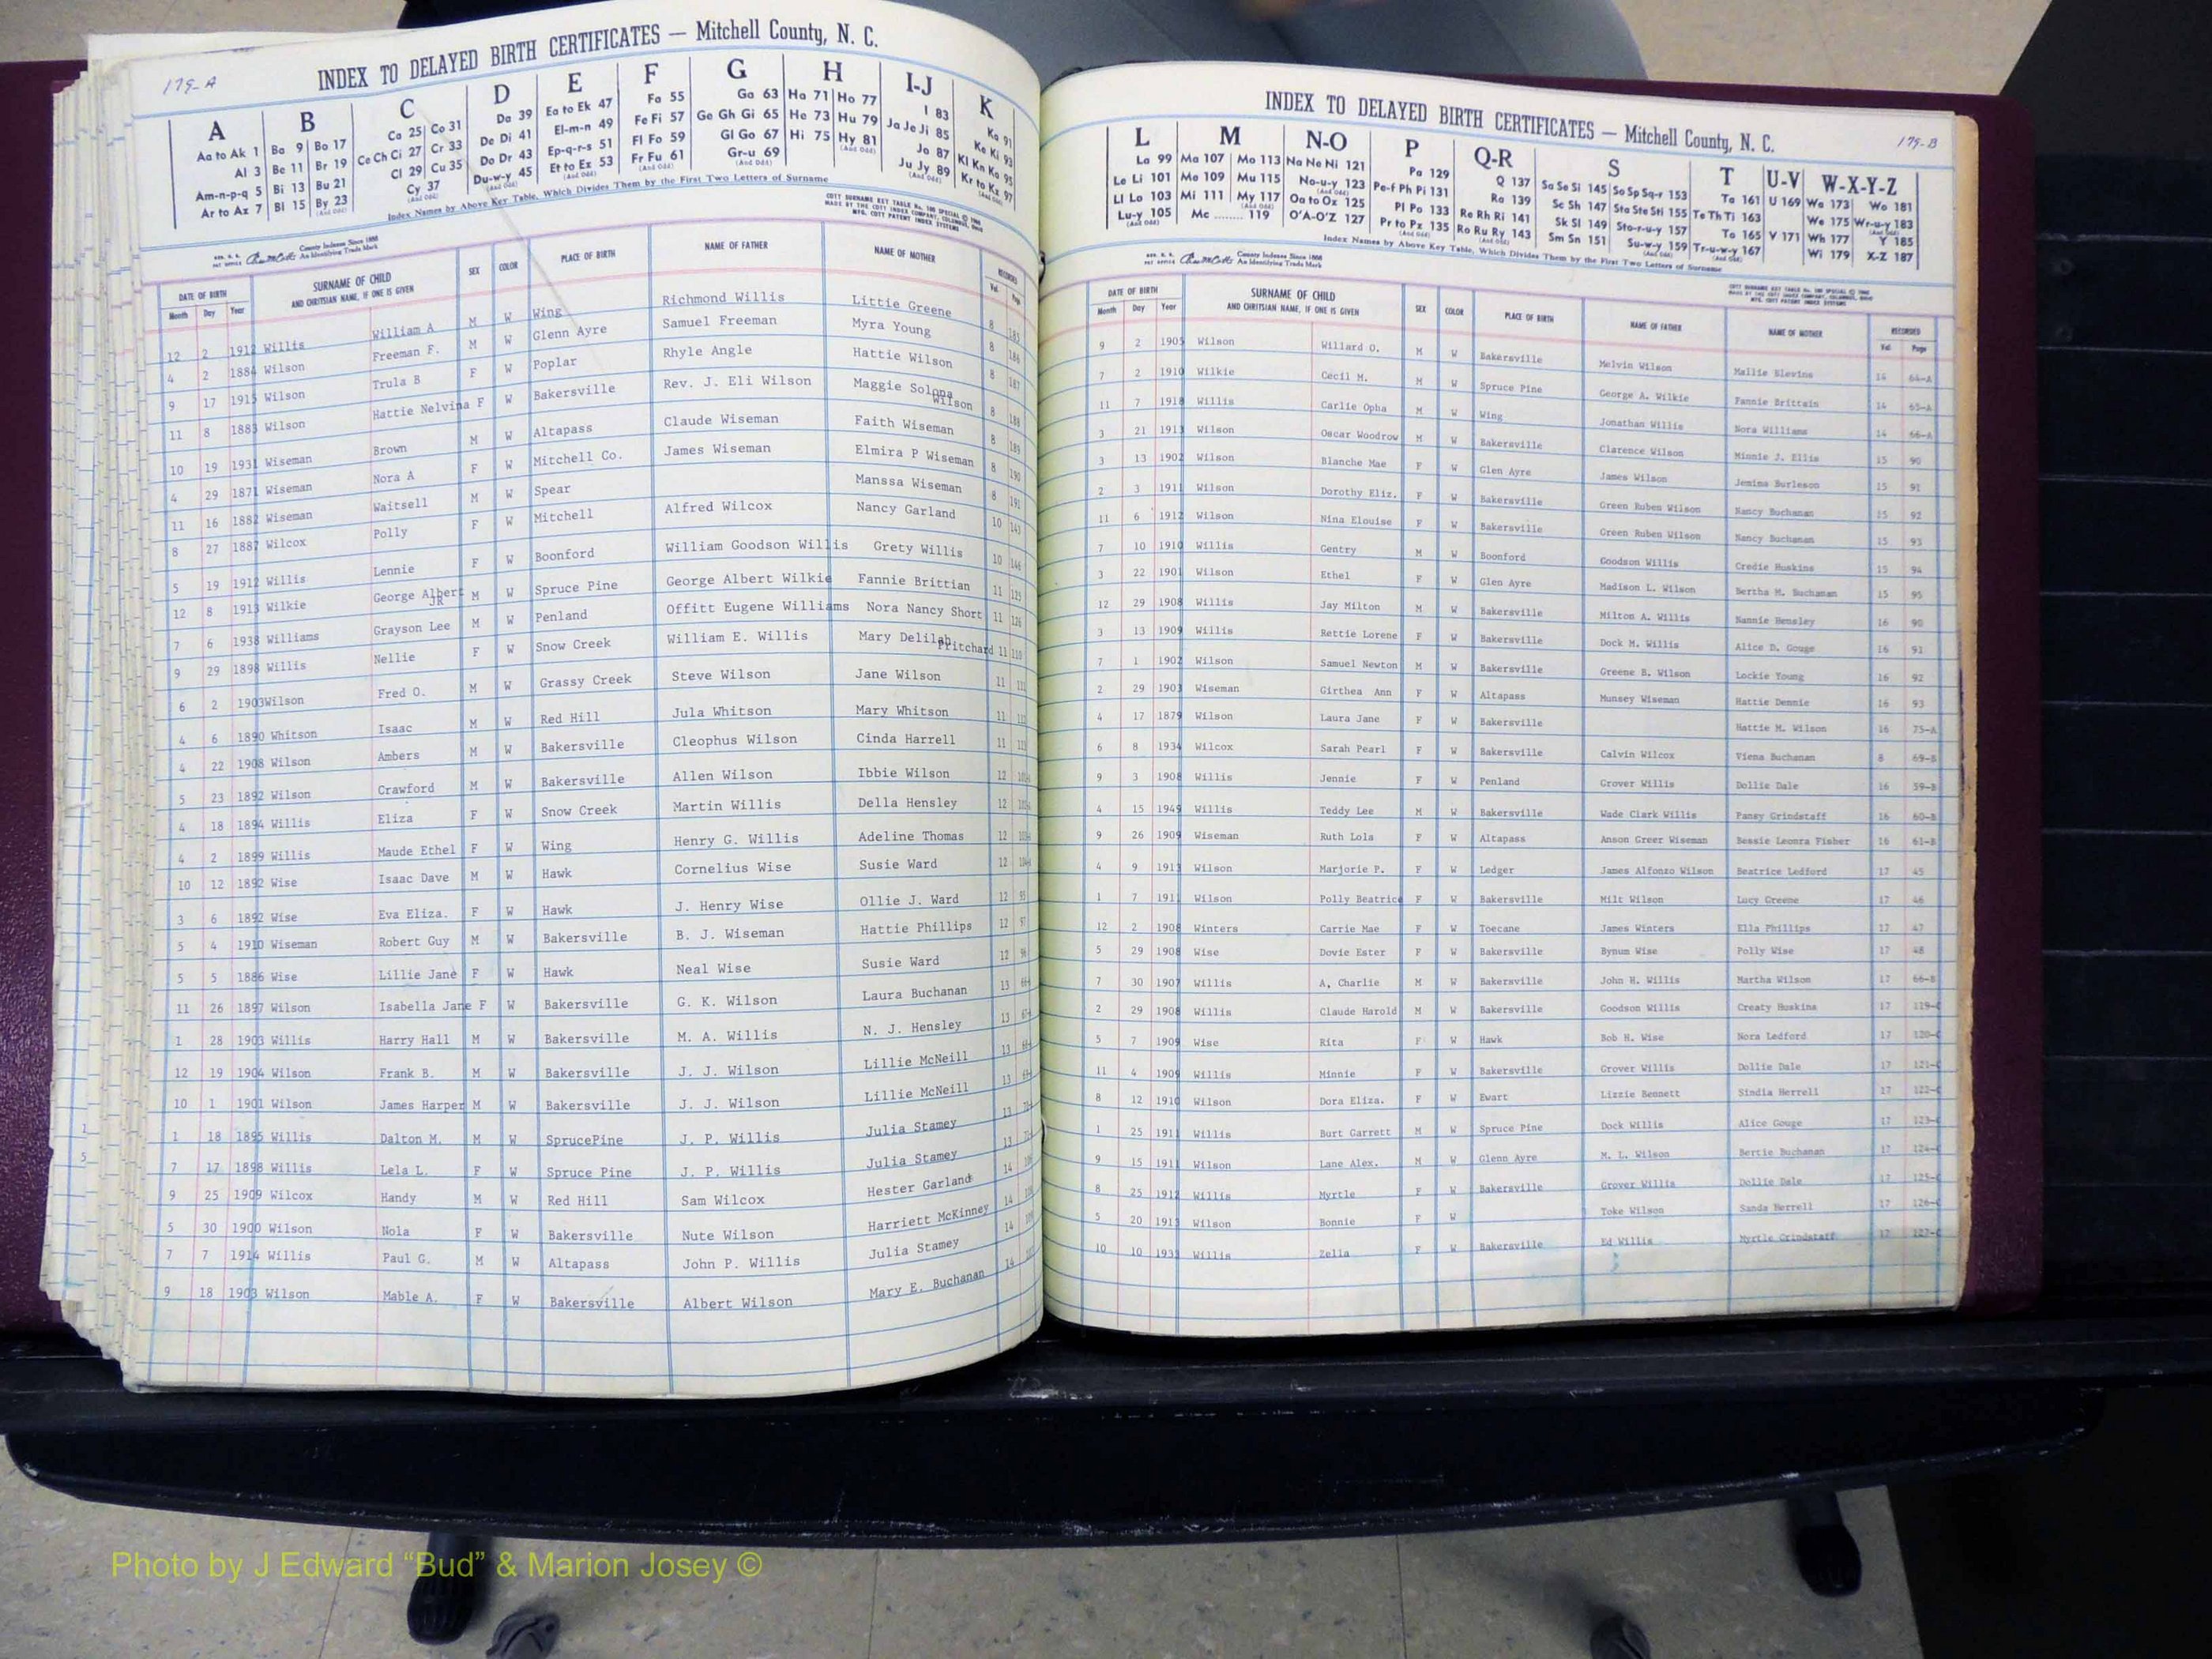 179-A
INDEX TO DELAYED BIRTH CERTIFICATES — Mitchell County, N. C.
A B C D E F G H I-J K
Aa to Ak 1 Ba 9 Bo 17 Ca 25 Co 31 Da 39 Ea to Ek 47 Fa 55 Ga 63 Ha 71 Ho 77 I 83 Ka 91
Al 3 Be 11 Br 19 Ce Ch Ci 27 Cr 33 De Di 41 El-m-n 49 Fe Fi 57 Ge Gh Gi 65 He 73 Hu 79 Ja Je Ji 85 Ke Ki 93
Am-n-p-q 5 Bi 13 Bu 21 Cl 29 Cu 35 Do Dr 43 Ep-q-r-s 51 Fl Fo 59 Gl Go 67 Hi 75 Hy 81 Jo 87 Kl Kn Ko 95
Ar to Az 7 Bl 15 By 23 Cy 37 Du-w-y 45 Et to Ez 53 Fr Fu 61 Gr-u 69 Ju Jy 89 Kr to Kz 97
Index Names by Above Key Table, Which Divides Them by the First Two Letters of Surname
County Indexes Since 1888
An Identifying Trade Mark
DATE OF BIRTH SURNAME OF CHILD SEX COLOR PLACE OF BIRTH NAME OF FATHER NAME OF MOTHER RECORDED
Month Day Year AND CHRITSIAN NAME, IF ONE IS GIVEN Vol. Page
12 2 1912 Willis William A M W Wing Richmond Willis Littie Greene 8 185
4 2 1884 Wilson Freeman F. M W Glenn Ayre Samuel Freeman Myra Young 8 186
9 17 1915 Wilson Trula B F W Poplar Rhyle Angle Hattie Wilson 8 187
11 8 1883 Wilson Hattie Nelvina F W Bakersville Rev. J. Eli Wilson Maggie Solona Wilson 8 188
10 19 1931 Wiseman Brown M W Altapass Claude Wiseman Faith Wiseman 8 189
4 29 1871 Wiseman Nora A F W Mitchell Co. James Wiseman Elmira P Wiseman 8 190
11 16 1882 Wiseman Waitsell M W Spear Manssa Wiseman 8 191
8 27 1887 Wilcox Polly F W Mitchell Alfred Wilcox Nancy Garland 10 143
5 19 1912 Willis Lennie F W Boonford William Goodson Willis Grety Willis 10 146
12 8 1913 Wilkie George Albert JR M W Spruce Pine George Albert Wilkie Fannie Brittian 11 125
7 6 1938 Williams Grayson Lee M W Penland Offitt Eugene Williams Nora Nancy Short 11 126
9 29 1898 Willis Nellie F W Snow Creek William E. Willis Mary Delilah Pritchard 11 110
6 2 1903 Wilson Fred O. M W Grassy Creek Steve Wilson Jane Wilson 11 111
4 6 1890 Whitson Isaac M W Red Hill Jula Whitson Mary Whitson 11
4 22 1908 Wilson Ambers M W Bakersville Cleophus Wilson Cinda Harrell 11
5 23 1892 Wilson Crawford M W Bakersville Allen Wilson Ibbie Wilson 12
4 18 1894 Willis Eliza F W Snow Creek Martin Willis Della Hensley 12
4 2 1899 Willis Maude Ethel F W Wing Henry G. Willis Adeline Thomas 12
10 12 1892 Wise Isaac Dave M W Hawk Cornelius Wise Susie Ward 12
3 6 1892 Wise Eva Eliza. F W Hawk J. Henry Wise Ollie J. Ward 12
5 4 1910 Wiseman Robert Guy M W Bakersville B. J. Wiseman Hattie Phillips 12
5 5 1886 Wise Lillie Jane F W Hawk Neal Wise Susie Ward 12
11 26 1897 Wilson Isabella Jane F W Bakersville G. K. Wilson Laura Buchanan 13
1 28 1903 Willis Harry Hall M W Bakersville M. A. Willis N. J. Hensley 13
12 19 1904 Wilson Frank B. M W Bakersville J. J. Wilson Lillie McNeill 13
10 1 1901 Wilson James Harper M W Bakersville J. J. Wilson Lillie McNeill 13
1 18 1895 Willis Dalton M. M W SprucePine J. P. Willis Julia Stamey 13
7 17 1898 Willis Lela L. F W Spruce Pine J. P. Willis Julia Stamey 13
9 25 1909 Wilcox Handy M W Red Hill Sam Wilcox Hester Garland 14
5 30 1900 Wilson Nola F W Bakersville Nute Wilson Harriett McKinney 14
7 7 1914 Willis Paul G. M W Altapass John P. Willis Julia Stamey 14
9 18 1903 Wilson Mable A. F W Bakersville Albert Wilson Mary E. Buchanan 14
179-B
INDEX TO DELAYED BIRTH CERTIFICATES — Mitchell County, N. C.
L M N-O P Q-R S T U-V W-X-Y-Z
La 99 Ma 107 Mo 113 Na Ne Ni 121 Pa 129 Q 137 Sa Se Si 145 So Sp Sq-r 153 Ta 161 U 169 Wa 173 Wo 181
Le Li 101 Me 109 Mu 115 No-u-y 123 Pe-f Ph Pi 131 Ra 139 Sc Sh 147 Sta Ste Sti 155 Te Th Ti 163 We 175 Wr-u-y 183
Ll Lo 103 Mi 111 My 117 Oa to Ox 125 Pl Po 133 Re Rh Ri 141 Sk Sl 149 Sto-r-u-y 157 To 165 V 171 Wh 177 Y 185
Lu-y 105 Mc ........ 119 O'A-O'Z 127 Pr to Pz 135 Ro Ru Ry 143 Sm Sn 151 Su-w-y 159 Tr-u-w-y 167 Wi 179 X-Z 187
Index Names by Above Key Table, Which Divides Them by the First Two Letters of Surname
County Indexes Since 1888
An Identifying Trade Mark
DATE OF BIRTH SURNAME OF CHILD SEX COLOR PLACE OF BIRTH NAME OF FATHER NAME OF MOTHER RECORDED
Month Day Year AND CHRITSIAN NAME, IF ONE IS GIVEN Vol. Page
9 2 1905 Wilson Willard O. M W Bakersville Melvin Wilson Mallie Blevins 14 64-A
7 2 1910 Wilkie Cecil M. M W Spruce Pine George A. Wilkie Fannie Brittain 14 65-A
11 7 1918 Willis Carlie Opha M W Wing Jonathan Willis Nora Williams 14 66-A
3 21 1913 Wilson Oscar Woodrow M W Bakersville Clarence Wilson Minnie J. Ellis 15 90
3 13 1902 Wilson Blanche Mae F W Glen Ayre James Wilson Jemima Burleson 15 91
2 3 1911 Wilson Dorothy Eliz. F W Bakersville Green Ruben Wilson Nancy Buchanan 15 92
11 6 1912 Wilson Nina Elouise F W Bakersville Green Ruben Wilson Nancy Buchanan 15 93
7 10 1910 Willis Gentry M W Boonford Goodson Willis Credie Huskins 15 94
3 22 1901 Wilson Ethel F W Glen Ayre Madison L. Wilson Bertha M. Buchanan 15 95
12 29 1908 Willis Jay Milton M W Bakersville Milton A. Willis Nannie Hensley 16 90
3 13 1909 Willis Rettie Lorene F W Bakersville Dock M. Willis Alice D. Gouge 16 91
7 1 1902 Wilson Samuel Newton M W Bakersville Greene B. Wilson Lockie Young 16 92
2 29 1903 Wiseman Girthea Ann F W Altapass Munsey Wiseman Hattie Dennie 16 93
4 17 1879 Wilson Laura Jane F W Bakersville Hattie M. Wilson 16 75-A
6 8 1934 Wilcox Sarah Pearl F W Bakersville Calvin Wilcox Viena Buchanan 8 69-B
9 3 1908 Willis Jennie F W Penland Grover Willis Dollie Dale 16 59-B
4 15 1949 Willis Teddy Lee M W Bakersville Wade Clark Willis Pansy Grindstaff 16 60-B
9 26 1909 Wiseman Ruth Lola F W Altapass Anson Greer Wiseman Bessie Leonra Fisher 16 61-B
4 9 1913 Wilson Marjorie P. F W Ledger James Alfonzo Wilson Beatrice Ledford 17 45
1 7 1911 Wilson Polly Beatrice F W Bakersville Milt Wilson Lucy Greene 17 46
12 2 1908 Winters Carrie Mae F W Toecane James Winters Ella Phillips 17 47
5 29 1908 Wise Dovie Ester F W Bakersville Bynum Wise Polly Wise 17 48
7 30 1907 Willis A, Charlie M W Bakersville John H. Willis Martha Wilson 17 66-B
2 29 1908 Willis Claude Harold M W Bakersville Goodson Willis Creaty Huskins 17 119-C
5 7 1909 Wise Rita F W Hawk Bob H. Wise Nora Ledford 17 120-C
11 4 1909 Willis Minnie F W Bakersville Grover Willis Dollie Dale 17 121-C
8 12 1910 Wilson Dora Eliza. F W Ewart Lizzie Bennett Sindia Herrell 17 122-C
1 25 1911 Willis Burt Garrett M W Spruce Pine Dock Willis Alice Gouge 17 123-C
9 15 1911 Wilson Lane Alex. M W Glenn Ayre M. L. Wilson Bertie Buchanan 17 124-C
8 25 1912 Willis Myrtle F W Bakersville Grover Willis Dollie Dale 17 125-C
5 20 1913 Wilson Bonnie F W Toke Wilson Sanda Herrell 17 126-C
10 10 1933 Willis Zella F W Bakersville Ed Willis Myrtle Grindstaff 17 127-C
Photo by J Edward “Bud” & Marion Josey ©